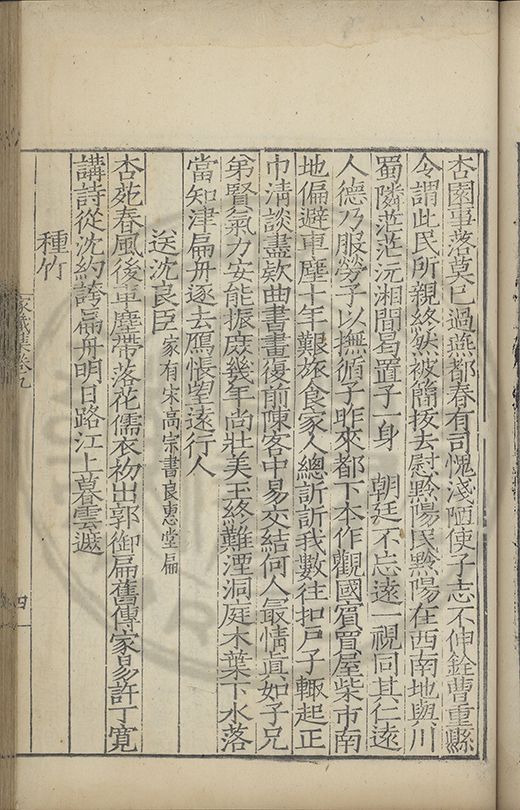 杏園事落莫已過燕都春有司愧淺陋使子志不伸銓曹重縣
令謂此民所親終然被簡拔去慰黔陽民黔陽在西南地與川
蜀隣茫茫沅湘間曷置子一身　朝廷不忘遠一視同其仁遠
人德乃服勞子以撫循子昨來都下本作觀國賔買屋柴市南
地偏避車塵十年艱旅食家人總訢訢我數往扣戶子輒起正
巾清談盡欵曲書畫復前陳客中易交結何人最情真如子兄
弟賢氣力安能振庻幾年尚壯美玉終難湮洞庭木葉下水落
當知津扁舟逐去鴈悵望遠行人
送沈良臣家有宋高宗書良惠堂扁
杏苑春風後車塵帶落花儒衣初出郭御扁舊傳家易許丁寛
講詩從沈約誇扁舟明日路江上暮雲遮
種竹
家藏集卷九
四